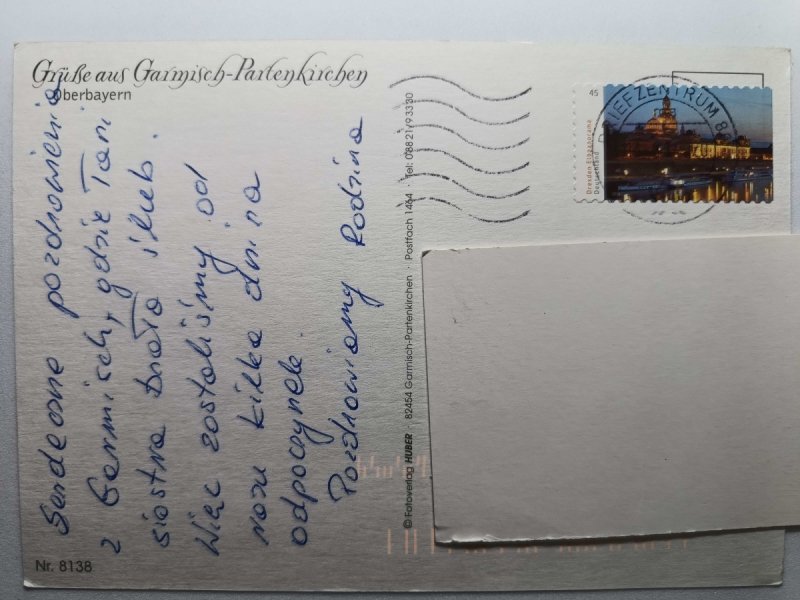 Grüße aus Garmisch-Partenkirchen
Oberbayern
Serdeczne pozdrowienia
z Garmisch, gdzie Tani
siostra brała ślub.
Więc zostaliśmy od
razu kilka dni na
odpoczynek.
Pozdrawiamy Rodzina
Nr. 8138
© Fotoverlag HUBER · 82454 Garmisch-Partenkirchen · Postfach 1464 Tel: 08821/93330
45
Dresden Elbpanorama
Deutschland
IEFZENTRUM 8